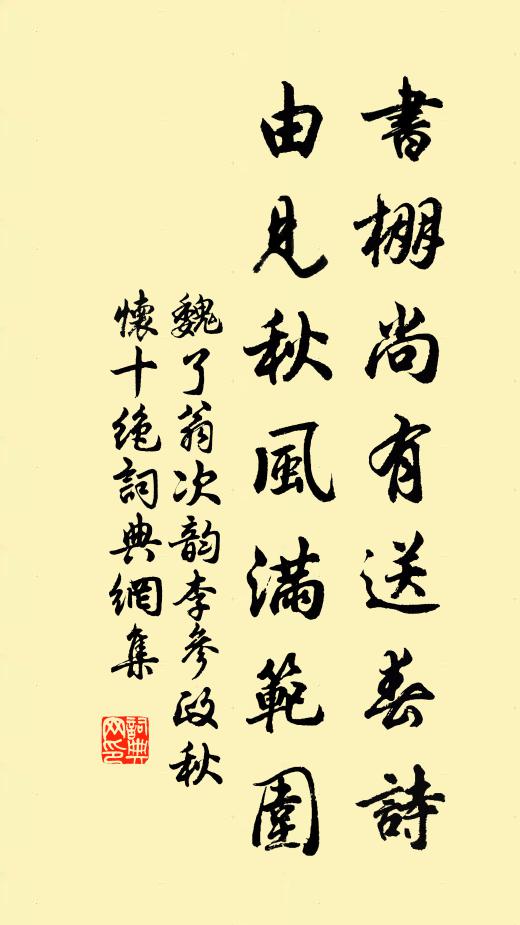 書棚尚有送春詩
由見秋風滿範圍
魏了翁次韵李參政秋
懷十絶詞典網集
詞典網印